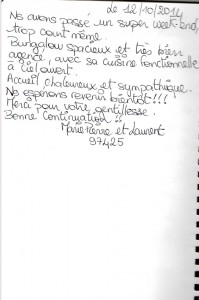 Le 12/10/2014
Ns avons passé un super week-end,
trop court même.
Bungalow spacieux et très bien
agencé, avec sa cuisine fonctionnelle
à ciel ouvert.
Accueil chaleureux et sympathique.
Ns espérons revenir bientôt!!!
Merci pour votre gentillesse.
Bonne Continuation!!
Marie Pierre et Laurent
97425